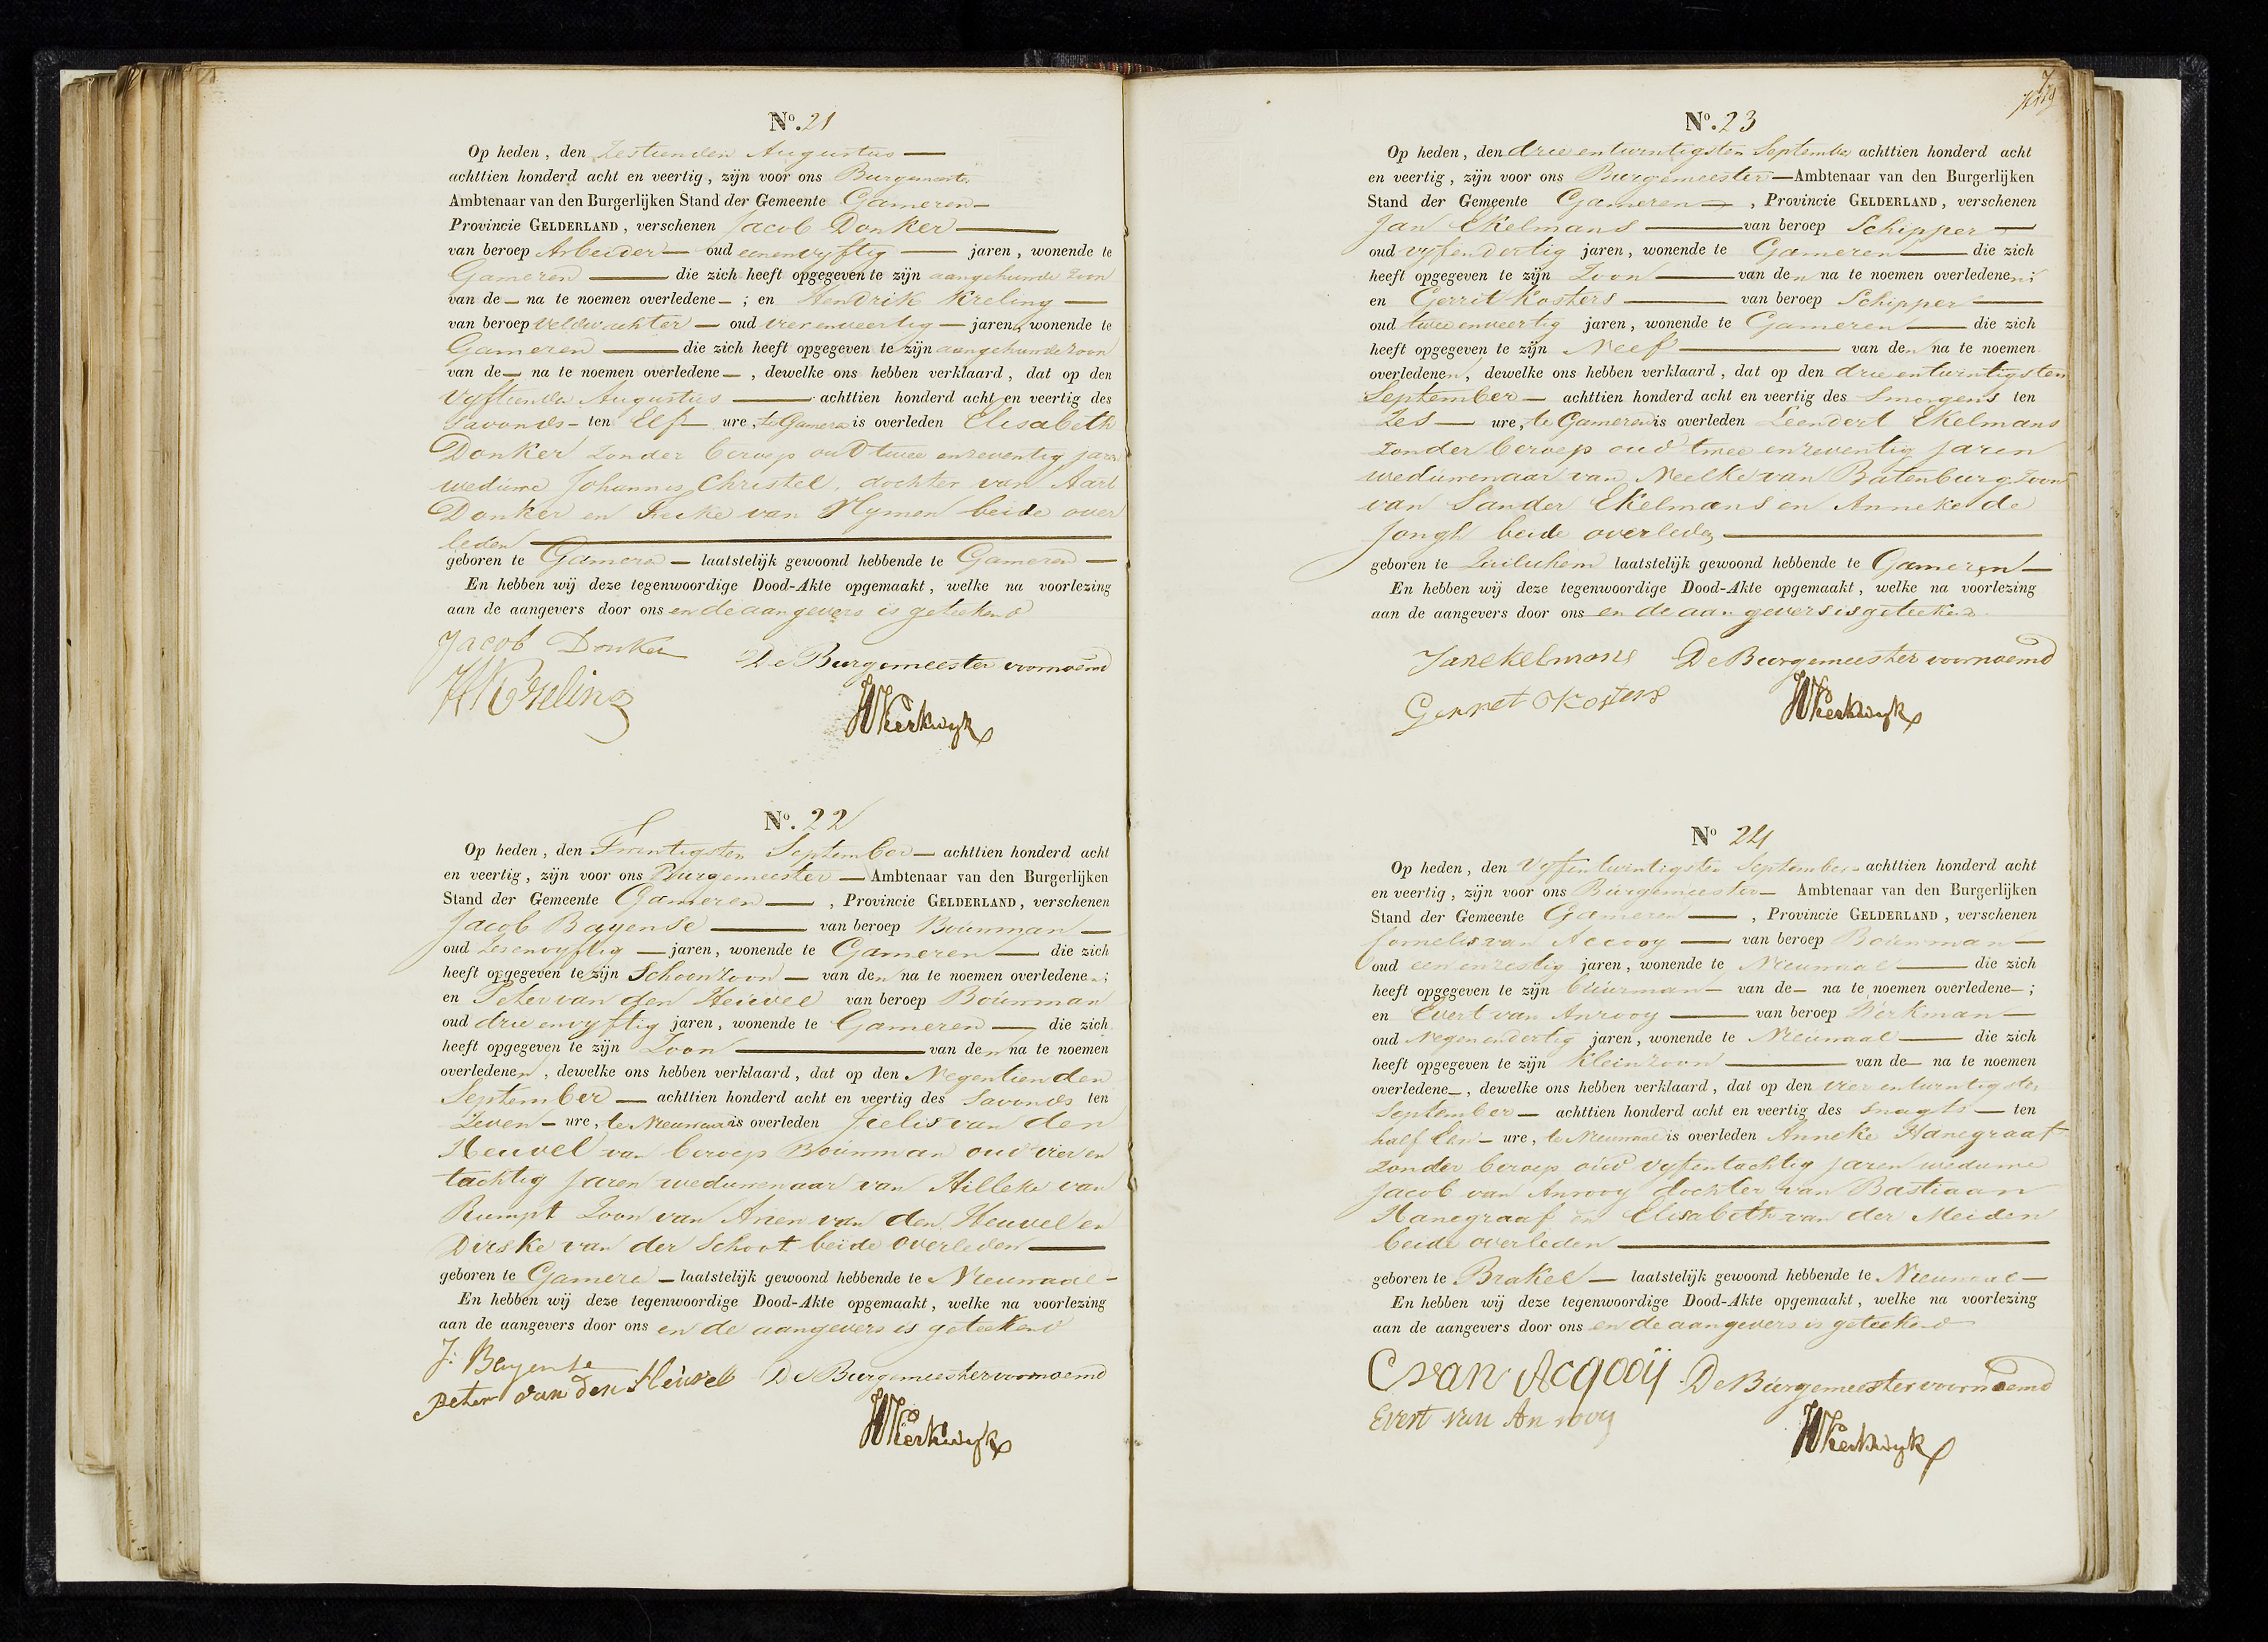 No. 21
Op heden, den Zestienden Augustus
achttien honderd acht en veertig, zijn voor ons Burgemeester
Ambtenaar van den Burgerlijken Stand der Gemeente Gameren
Provincie GELDERLAND, verschenen Jacob Donker
van beroep Arbeider oud eenenvyftig jaren, wonende te
Gameren die zich heeft opgegeven te zijn aangehuwde zoon
van de na te noemen overledene ; en Hendrik Kreling
van beroep veldwachter oud vierenveertig jaren, wonende te
Gameren die zich heeft opgegeven te zijn aangehuwde zoon
van de na te noemen overledene , dewelke ons hebben verklaard, dat op den
Vyftienden Augustus achttien honderd acht en veertig des
savonds ten Elf ure, te Gameren is overleden Elisabeth
Donker zonder beroep oud twee enzeventig jaren
weduwe Johannes Christel, dochter van Aart
Donker en van Hymen beide over
leden
geboren te Gameren laatstelijk gewoond hebbende te Gameren
En hebben wij deze tegenwoordige Dood-Akte opgemaakt, welke na voorlezing
aan de aangevers door ons en de aangevers is geteekend
Jacob Donker
De Burgemeester voornoemd
HKreling
Kerkwyk
No. 22
Op heden, den Twintigsten September achttien honderd acht
en veertig, zijn voor ons Burgemeester Ambtenaar van den Burgerlijken
Stand der Gemeente Gameren , Provincie GELDERLAND, verschenen
Jacob Bayense van beroep Bouwman
oud Zesenvyftig jaren, wonende te Gameren die zich
heeft opgegeven te zijn Schoonzoon van den na te noemen overledenen;
en Peter van den Heuvel van beroep Bouwman
oud drie envyftig jaren, wonende te Gameren die zich
heeft opgegeven te zijn Zoon van den na te noemen
overledenen, dewelke ons hebben verklaard, dat op den Negentienden
September achttien honderd acht en veertig des savonds ten
Zeven ure, te Nieuwaal is overleden Jielis van den
Heuvel van beroep Bouwman oud vier en
tachtig jaren weduwenaar van Hilleke van
Rumpt Zoon van Arien van den Heuvel en
Dirske van der Schoot beide overleden
geboren te Gameren laatstelijk gewoond hebbende te Nieuwaal
En hebben wij deze tegenwoordige Dood-Akte opgemaakt, welke na voorlezing
aan de aangevers door ons en de aangevers is geteekend
J: Bayense
Peter van den Heuvel De Burgemeester voornoemd
Kerkwyk
No. 23
Op heden, den drie entwintigsten September achttien honderd acht
en veertig, zijn voor ons Burgemeester Ambtenaar van den Burgerlijken
Stand der Gemeente Gameren , Provincie GELDERLAND, verschenen
Jan Ekelmans van beroep Schipper
oud vyfendertig jaren, wonende te Gameren die zich
heeft opgegeven te zijn Zoon van den na te noemen overledenen;
en Gerrit Kosters van beroep Schipper
oud tweeenveertig jaren, wonende te Gameren die zich
heeft opgegeven te zijn Neef van den na te noemen
overledenen, dewelke ons hebben verklaard, dat op den drie entwintigsten
September achttien honderd acht en veertig des Smorgens ten
Zes ure, te Gameren is overleden Leendert Ekelmans
zonder beroep oud twee enzeventig jaren
weduwenaar van Neelke van Batenburg Zoon
van Sander Ekelmans en Anneke de
Jongh beide overleden
geboren te Zuilichem laatstelijk gewoond hebbende te Gameren
En hebben wij deze tegenwoordige Dood-Akte opgemaakt, welke na voorlezing
aan de aangevers door ons en de aangevers is geteekend
Jan ekelmans De Burgemeester voornoemd
Gerret Kosters
Kerkwyk
No 24
Op heden, den Vyfentwintigsten September achttien honderd acht
en veertig, zijn voor ons Burgemeester Ambtenaar van den Burgerlijken
Stand der Gemeente Gameren , Provincie GELDERLAND, verschenen
Cornelis van Accooy van beroep Bouwman
oud een enzestig jaren, wonende te Nieuwaal die zich
heeft opgegeven te zijn buurman van de na te noemen overledene ;
en Evert van Anrooy van beroep Werkman
oud Negenendertig jaren, wonende te Nieuwaal die zich
heeft opgegeven te zijn Kleinzoon van de na te noemen
overledene , dewelke ons hebben verklaard, dat op den vier entwintigsten
September achttien honderd acht en veertig des snagts ten
half Een ure, te Nieuwaal is overleden Anneke Hanegraaf
zonder beroep oud vyfentachtig jaren weduwe
Jacob van Anrooy dochter van Bastiaan
Hanegraaf en Elisabeth van der Meiden
beide overleden
geboren te Brakel laatstelijk gewoond hebbende te Nieuwaal
En hebben wij deze tegenwoordige Dood-Akte opgemaakt, welke na voorlezing
aan de aangevers door ons en de aangevers is geteekend
C van Acqooij De Burgemeester voornoemd
Evert van An rooy
Kerkwyk